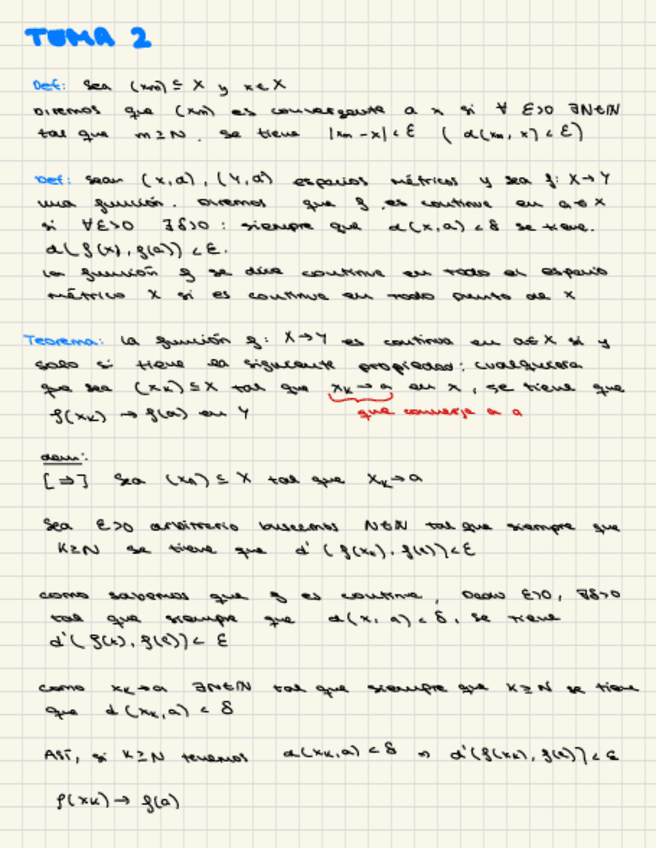 TEMA 2
Def: Sea (xn) ⊆ X y x∈X
Diremos que (xn) es convergente a x si ∀ ε>0 ∃N∈ℕ
tal que n≥N. se tiene |xn-x|<ε ( d(xn, x)<ε)
Def: sean (X,d), (Y,d') espacios métricos y sea f: X→Y
una función. Diremos que f es continua en a∈X
si ∀ε>0 ∃δ>0 : siempre que d(x,a)<δ se tiene.
d(f(x), f(a))<ε.
La función f se dice continua en todo el espacio
métrico X si es continua en todo punto de X
Teorema: La función f: X→Y es continua en a∈X si y
solo si tiene la siguiente propiedad: cualquiera
que sea (xk)⊆X tal que xk→a en X, se tiene que
f(xk) → f(a) en Y
que converja a a
dem:
[⇒] Sea (xn) ⊆ X tal que xk→a
Sea ε>0 arbitrario buscamos N∈ℕ tal que siempre que
k≥N se tiene que d' (f(xk), f(a))<ε
como sabemos que f es continua, Dado ε>0, ∃δ>0
tal que siempre que d(x, a)<δ, se tiene
d'(f(x), f(a))< ε
como xk→a ∃N∈ℕ tal que siempre que k≥N se tiene
que d(xk,a) < δ
ASÍ, si k≥N tenemos d(xk,a)<δ ⇒ d'(f(xk), f(a))<ε
f(xk)→ f(a)